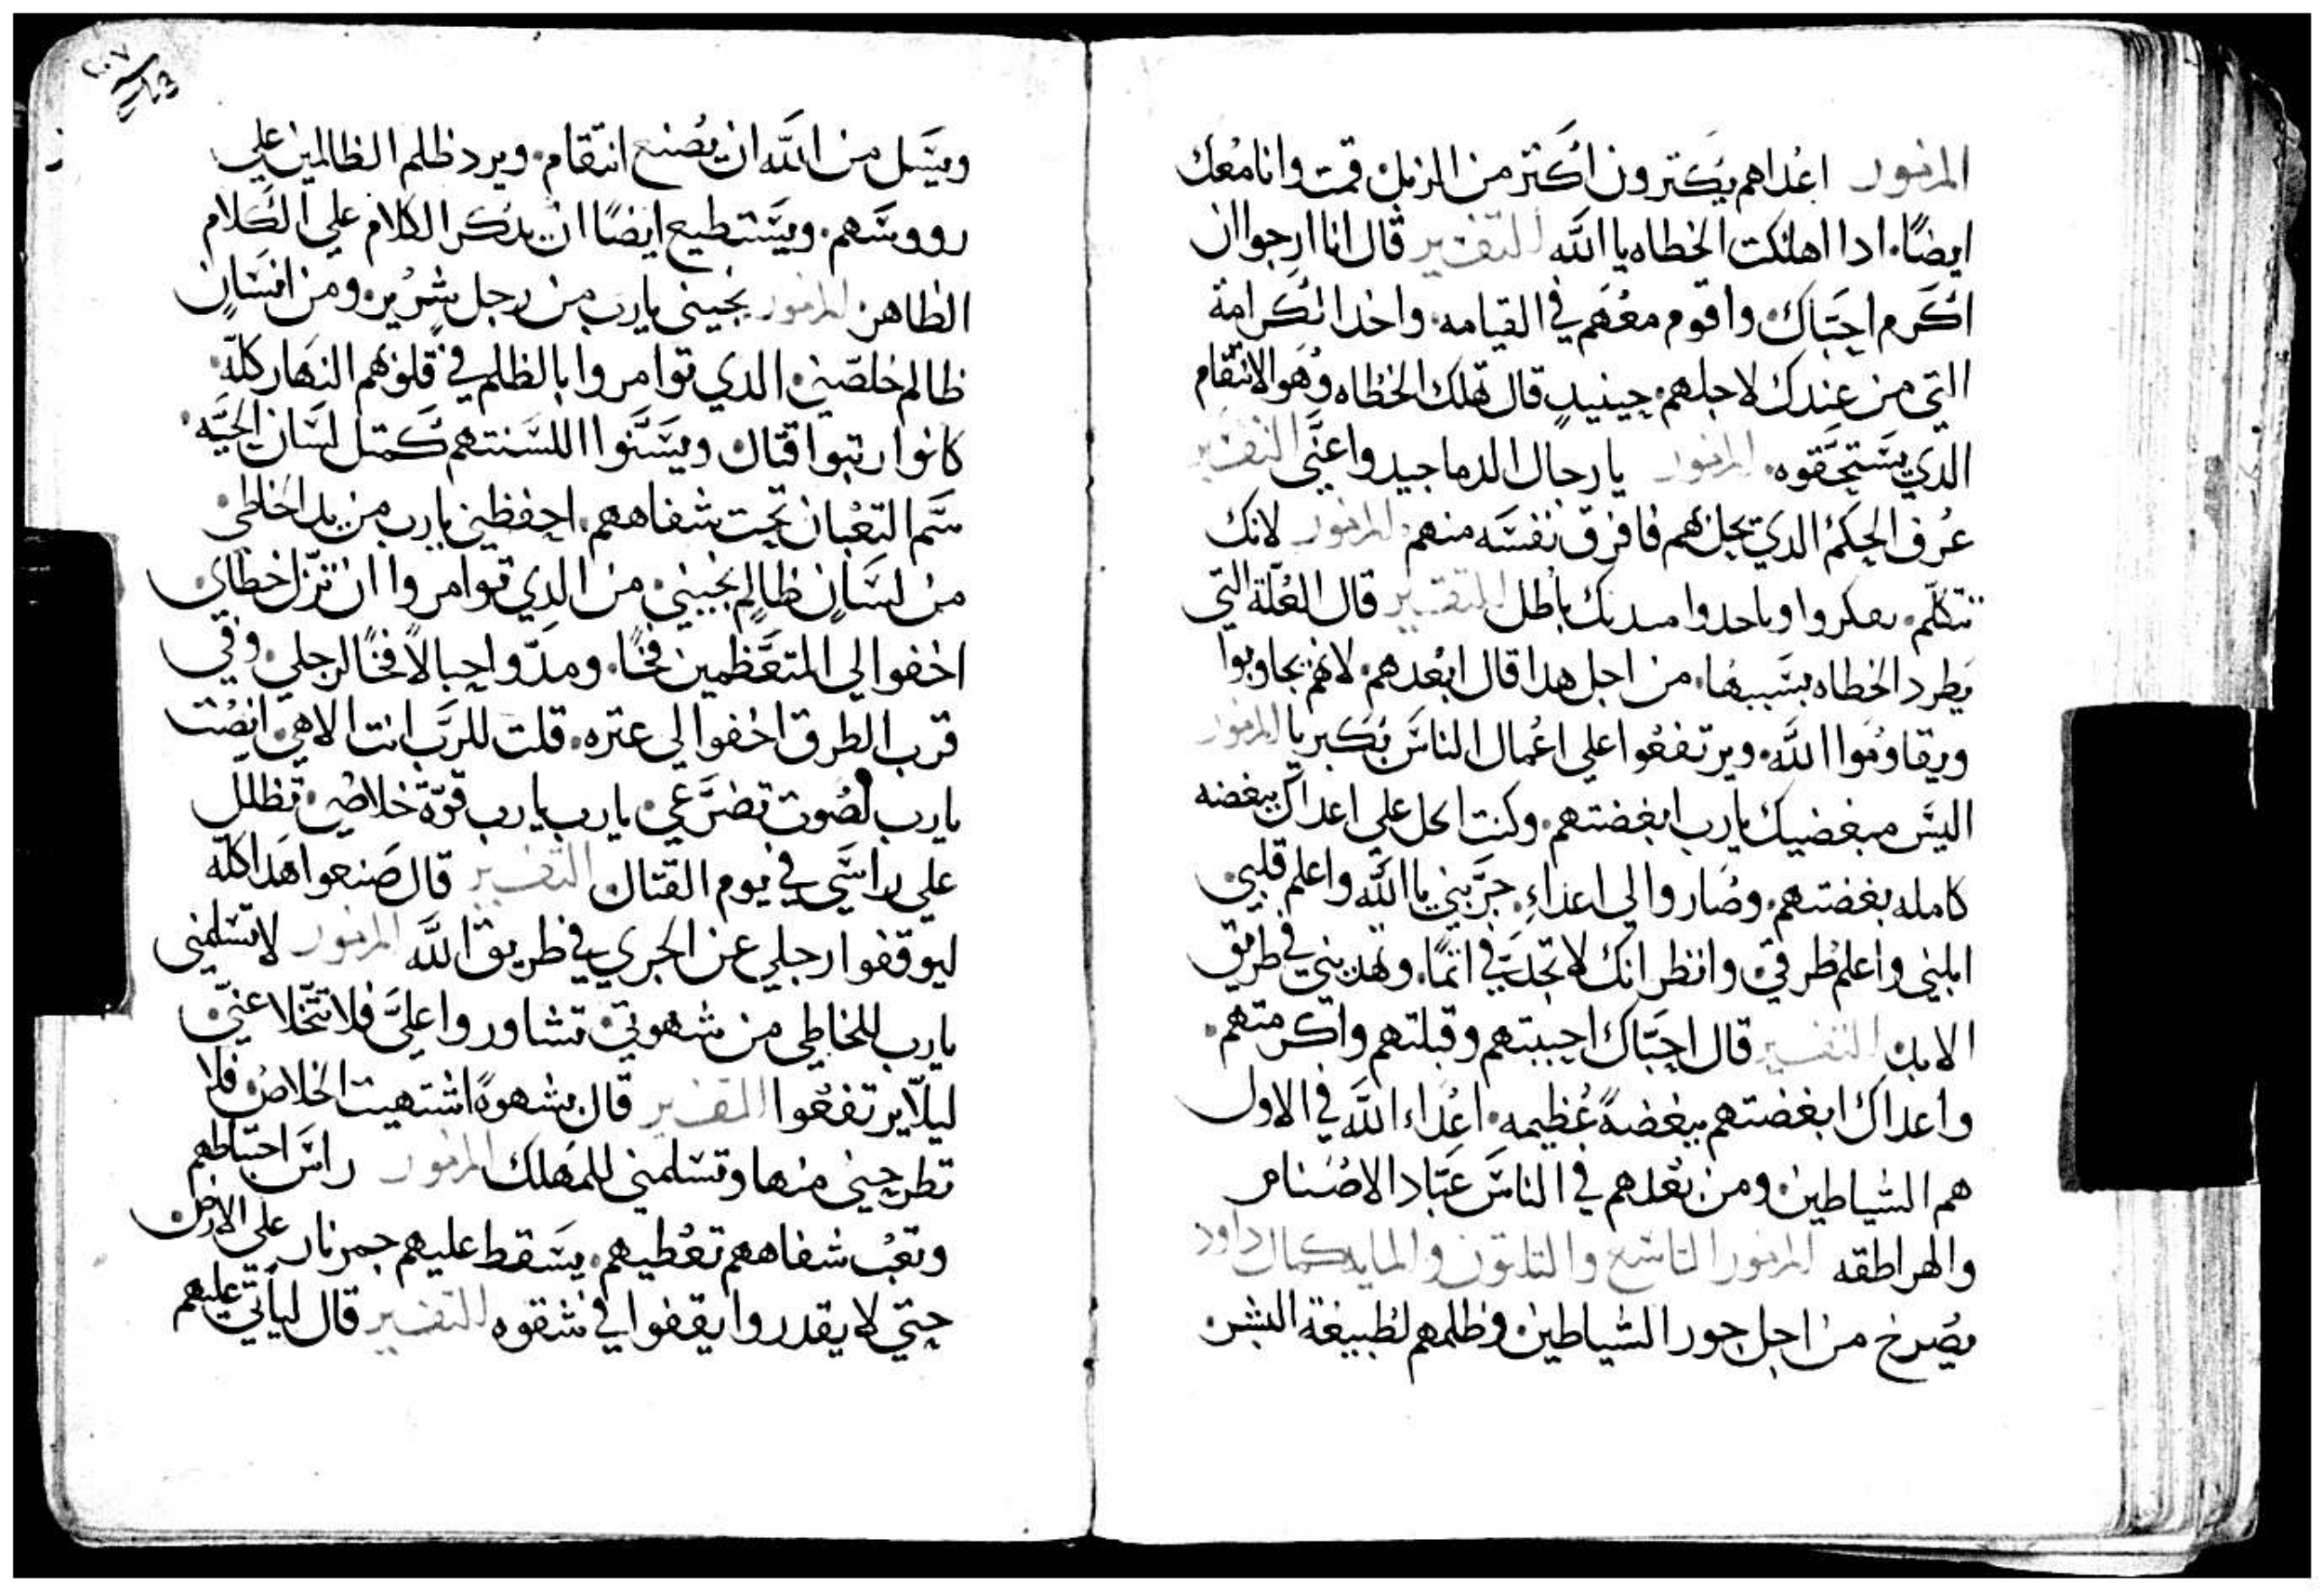 المزمور اعداهم يكترون اكتر من الرمل قمت وانا معك
ايضًا. ادا اهلكت الخطاه يا الله التفسير قال انا ارجوا ان
اكرم احبّاك واقوم معهم في القيامه واخد الكرامة
التي من عندك لاجلهم حينيدٍ قال تهلك الخطاه وهو الانتقام
الدي يستحقوه المزمور يا رجال الدما حيدوا عنّي التفسير
عرف الحكم الدي يحل بهم فافرق نفسه منهم المزمور لانك
تتكلم وياخدوا مدنك باطل التفسير قال العلّة التي
يطرد الخطاه بسببها من اجل هدا قال ابعدهم لانهم يجاوبوا
ويقاوموا الله ويرتفعوا على اعمال الناس بكبريا المزمور
اليس مبغضيك يارب ابغضتهم وكنت احل علي اعداك ببغضه
كامله بغضتهم وصاروا لي اعداءٍ جرّبني يا الله واعلم قلبي
ابليني واعلم طرقي وانظر انك لا تجد فيّ اتمًا وتهديني في طريق
الابد التفسير قال احبّاك احببتهم وقبلتهم واكرمتهم
واعداك ابغضتهم ببغضةً عظيمه اعداء الله في الاول
هم الشياطين ومن بعدهم في الناس عبّاد الاصنام
والهراطقه المزمور التاسع والتلتون والمايه كمال داود
يصرخ من اجل جور الشياطين وظلمهم لطبيعة البشر
٢٠٧
ويسل من الله ان يصنع انتقام ويرد ظلم الظالمين علي
رووسهم ويستطيع ايضًا ان يدكر الكلام علي الكلام
الظاهر المزمور نجيني يارب من رجل شرير ومن انسانٍ
ظالم خلصني الدي توامروا بالظلم في قلوبهم النهار كلّه
كانوا رتبوا قتال ويسنّوا اللسنتهم كمتل لسان الحيّه
سّم التعبان تحت شفاههم احفظني يارب من يد الخاطي
من لسانٍ ظالمٍ نجيني من الدي توامروا ان تزّل خطاي
اخفوا لي المتعظّمين فخًا ومدّوا حبالاً فخًا لرجلي وفي
قرب الطرق اخفوا لي عتره قلت للربّ انت الاهي انصت
يارب لصوت تضرّعي يارب يارب قوّة خلاصي تظلل
علي راسي في يوم القتال التفسير قال صنعوا هدا كلّه
ليوقفوا رجلي عن الجري في طريق الله المزمور لا تسلمني
يارب للخاطي من شهوتي تشاوروا عليّ فلا تتخلا عنّي
ليلّا يرتفعوا التفسير قال بشهوةً اشتهيت الخلاص فلا
تطرحني منها وتسلمني للمهلك المزمور راس احتياطهم
وتعب شفاههم تغطيهم يسقط عليهم جمر نار علي الارض
حتي لا يقدروا يقفوا في شقوه التفسير قال لياتي عليهم